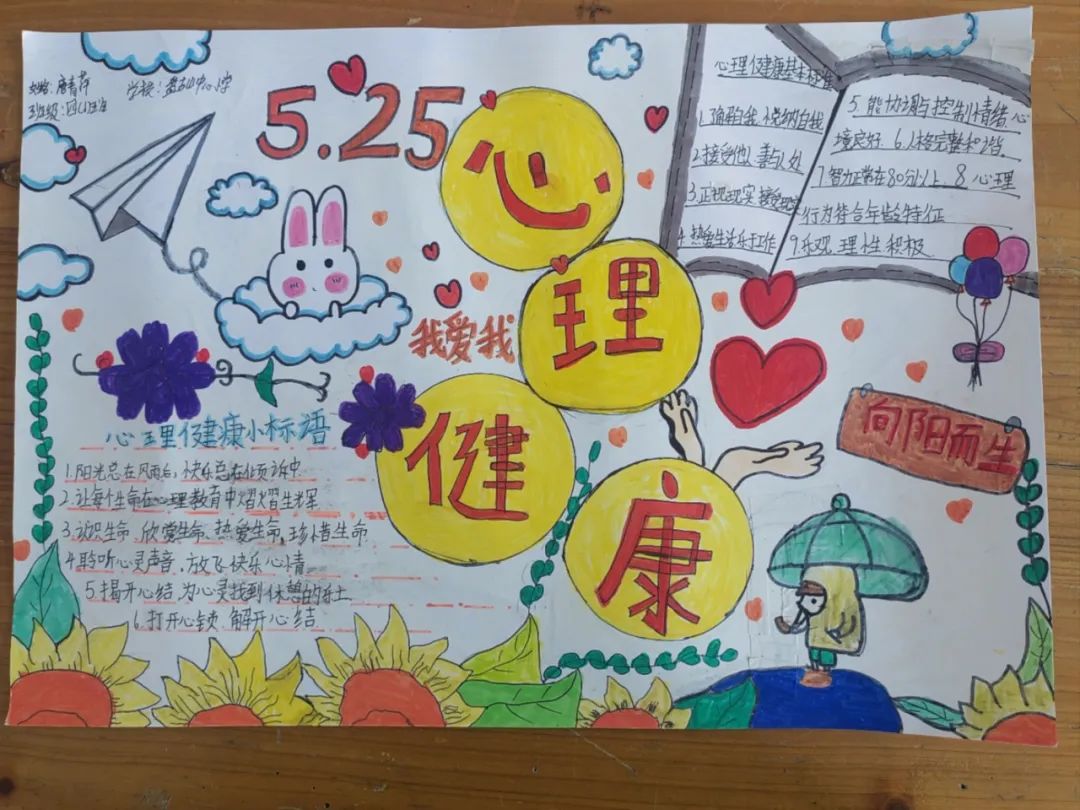 姓名:唐青萍
学校:盘古山中心小学
班级:四(1)班
5.25
心
理
健
康
我爱我
心理健康基本标准
1.确认自我 悦纳自我
2.接受他人 善与人处
3.正视现实 接受现实
4.热爱生活 乐于工作
5.能协调与控制情绪 心
境良好 6.人格完整和谐
7.智力正常在80分以上 8.心理
行为符合年龄特征
9.乐观 理性 积极
向阳而生
心理健康小标语
1.阳光总在风雨后,快乐总在倾诉中
2.让每个生命在心理教育中熠熠生辉
3.认识生命 欣赏生命 热爱生命 珍惜生命
4.聆听心灵声音,放飞快乐心情
5.揭开心结,为心灵找到休憩的乐土
6.打开心锁 解开心结